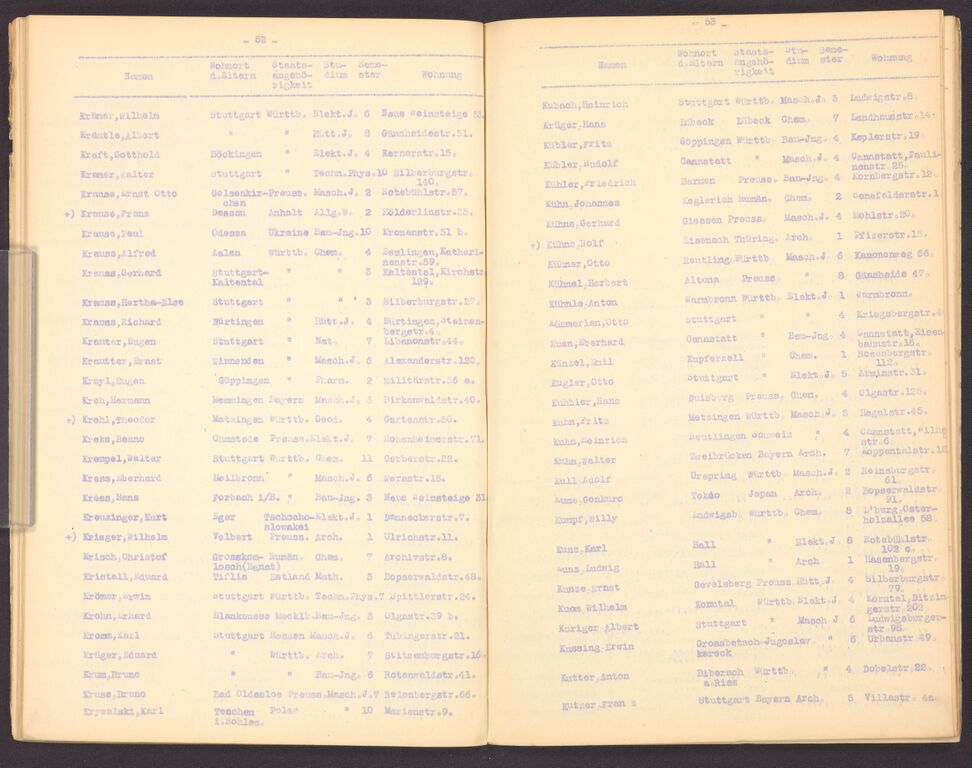 - 52 -
Wohnort Staats- Stu- Seme-
Namen d.Eltern angehö- dium ster Wohnung
rigkeit
Krämer,Wilhelm Stuttgart Württb. Elekt.J. 6 Neue Weinsteige 53.
Kräutle,Albert " " Hütt.J. 8 Gänsheidestr.51.
Kraft,Gotthold Böckingen " Elekt.J. 4 Kernerstr.15.
Kramer,Walter Stuttgart " Techn.Phys.10 Silberburgstr.
140.
Krause,Ernst Otto Gelsenkir-Preuss. Masch.J. 2 Rotebühlstr.57.
chen
+) Krause,Franz Dessau Anhalt Allg.W. 2 Hölderlinstr.35.
Krause,Paul Odessa Ukraine Bau-Jng.10 Kronenstr.51 b.
Krauss,Alfred Aalen Württb. Chem. 4 Esslingen,Kathari-
nenstr.59.
Krauss,Gerhard Stuttgart- " " 3 Kaltental,Kirchstr.
Kaltental 129.
Krauss,Hertha-Else Stuttgart " " 3 Silberburgstr.27.
Krauss,Richard Nürtingen " Hütt.J. 4 Nürtingen,Steinen-
bergstr.4.
Krauter,Eugen Stuttgart " Nat. 7 Libanonstr.44.
Krautter,Ernst Winnenden " Masch.J. 6 Alexanderstr.120.
Krayl,Eugen Göppingen " Pharm. 2 Militärstr.36 a.
Kreh,Hermann Memmingen Bayern Masch.J. 3 Birkenwaldstr.40.
+) Krehl,Theodor Metzingen Württb. Geod. 4 Gartenstr.50.
Kreke,Benno Ohmstede Preuss.Elekt.J. 7 Hohenheimerstr.71.
Krempel,Walter Stuttgart Württb. Chem. 11 Gerberstr.22.
Kress,Eberhard Heilbronn " Masch.J. 6 Werastr.18.
Kress,Hans Forbach i/B. " Bau-Jng. 3 Neue Weinsteige 31
Kreuzinger,Kurt Eger Tschecho-Elekt.J. 1 Danneckerstr.7.
slowakei
+) Krieger,Wilhelm Velbert Preuss. Arch. 1 Ulrichstr.11.
Krisch,Christof Grosskom- Rumän. Chem. 7 Archivstr.8.
losch(Banat)
Kristall,Eduard Tiflis Estland Math. 3 Bopserwaldstr.48.
Krömer,Erwin Stuttgart Württb. Techn.Phys.7 Spittlerstr.24.
Krohn,Erhard Blankensee Mecklb.Bau-Jng. 3 Olgastr.39 b.
Kromm,Karl Stuttgart Hessen Masch.J. 6 Tübingerstr.21.
Krüger,Eduard " Württb. Arch. 7 Stitzenburgstr.16.
Krumm,Bruno " " Bau-Jng. 6 Rotenwaldstr.41.
Kruse,Bruno Bad Oldesloe Preuss.Masch.J.7 Relenbergstr.66.
Krywalski,Karl Teschen Polen " 10 Marienstr.9.
i.Schles.
- 53 -
Wohnort Staats- Stu- Seme-
Namen d.Eltern angehö- dium ster Wohnung
rigkeit
Kubach,Heinrich Stuttgart Württb. Masch.J. 3 Ludwigstr.8.
Krüger,Hans Lübeck Lübeck Chem. 7 Landhausstr.14.
Kübler,Fritz Göppingen Württb. Bau-Jng. 4 Keplerstr.19.
Kübler,Rudolf Cannstatt " Masch.J. 4 Cannstatt,Pauli-
nenstr.25.
Kühler,Friedrich Barmen Preuss. Bau-Jng. 4 Kornbergstr.12.
Kühn,Johannes Rumän. Chem. 2 Senefelderstr.1
Kühne,Gerhard Giessen Preuss. Masch.J. 4 Mohlstr.20.
+) Kühne,Rolf Eisenach Thüring. Arch. 1 Pfizerstr.15.
Kühner,Otto Reutling.Württb. Masch.J. 6 Kanonenweg 66.
Kühnel,Herbert Altona Preuss. " 8 Gänsheide 47.
Kühnle,Anton Warmbronn Württb. Elekt.J. 1 Warmbronn.
Kümmerlen,Otto Stuttgart " " 4 Kriegsbergstr.4
Kuen,Eberhard Cannstatt " Bau-Jng. 4 Cannstatt,Eisen-
bahnstr.16.
Künzel,Emil Kupferzell " Chem. 1 Rosenbergstr.
112.
Kugler,Otto Stuttgart " Elekt.J. 5 Arminstr.31.
Kuhbier,Hans Duisburg Preuss. Chem. 4 Olgastr.125.
Kuhn,Fritz Metzingen Württb. Masch.J. 5 Hegelstr.45.
Kuhn,Heinrich Reutlingen Schweiz " 4 Cannstatt,Wilh
str.6.
Kuhn,Walter Zweibrücken Bayern Arch. 7 Koppentalstr.1
Kull Adolf Urspring Württb. Masch.J. 2 Reinsburgstr.
61.
Gonkuro Tokio Japan Arch. 2 Bopserwaldstr.
91.
Kumpf,Willy Ludwigsb. Württb. Chem. 8 L'burg,Oster-
holzallee 58.
Kunz,Karl Hall " Elekt.J. 8 Rotebühlstr.
102 c.
Kunz,Ludwig Hall " Arch. 1 Hasenbergstr.
19.
Kunze,Ernst Gevelsberg Preuss.Hütt.J. 4 Silberburgstr.
79.
Kuom,Wilhelm Korntal Württb.Elekt.J. 4 Korntal,Ditzin-
gerstr.202
Kuriger,Albert Stuttgart " Masch.J 6 Ludwigsburger-
str.95.
Kussing,Erwin Grossbetsch-Jugoslav " 6 Urbanstr.49.
kereck
Kutter,Anton Biberach Württb. " 4 Dobelstr.22.
a.Riss
Kutzer,Franz Stuttgart Bayern Arch. 5 Villastr.4a.